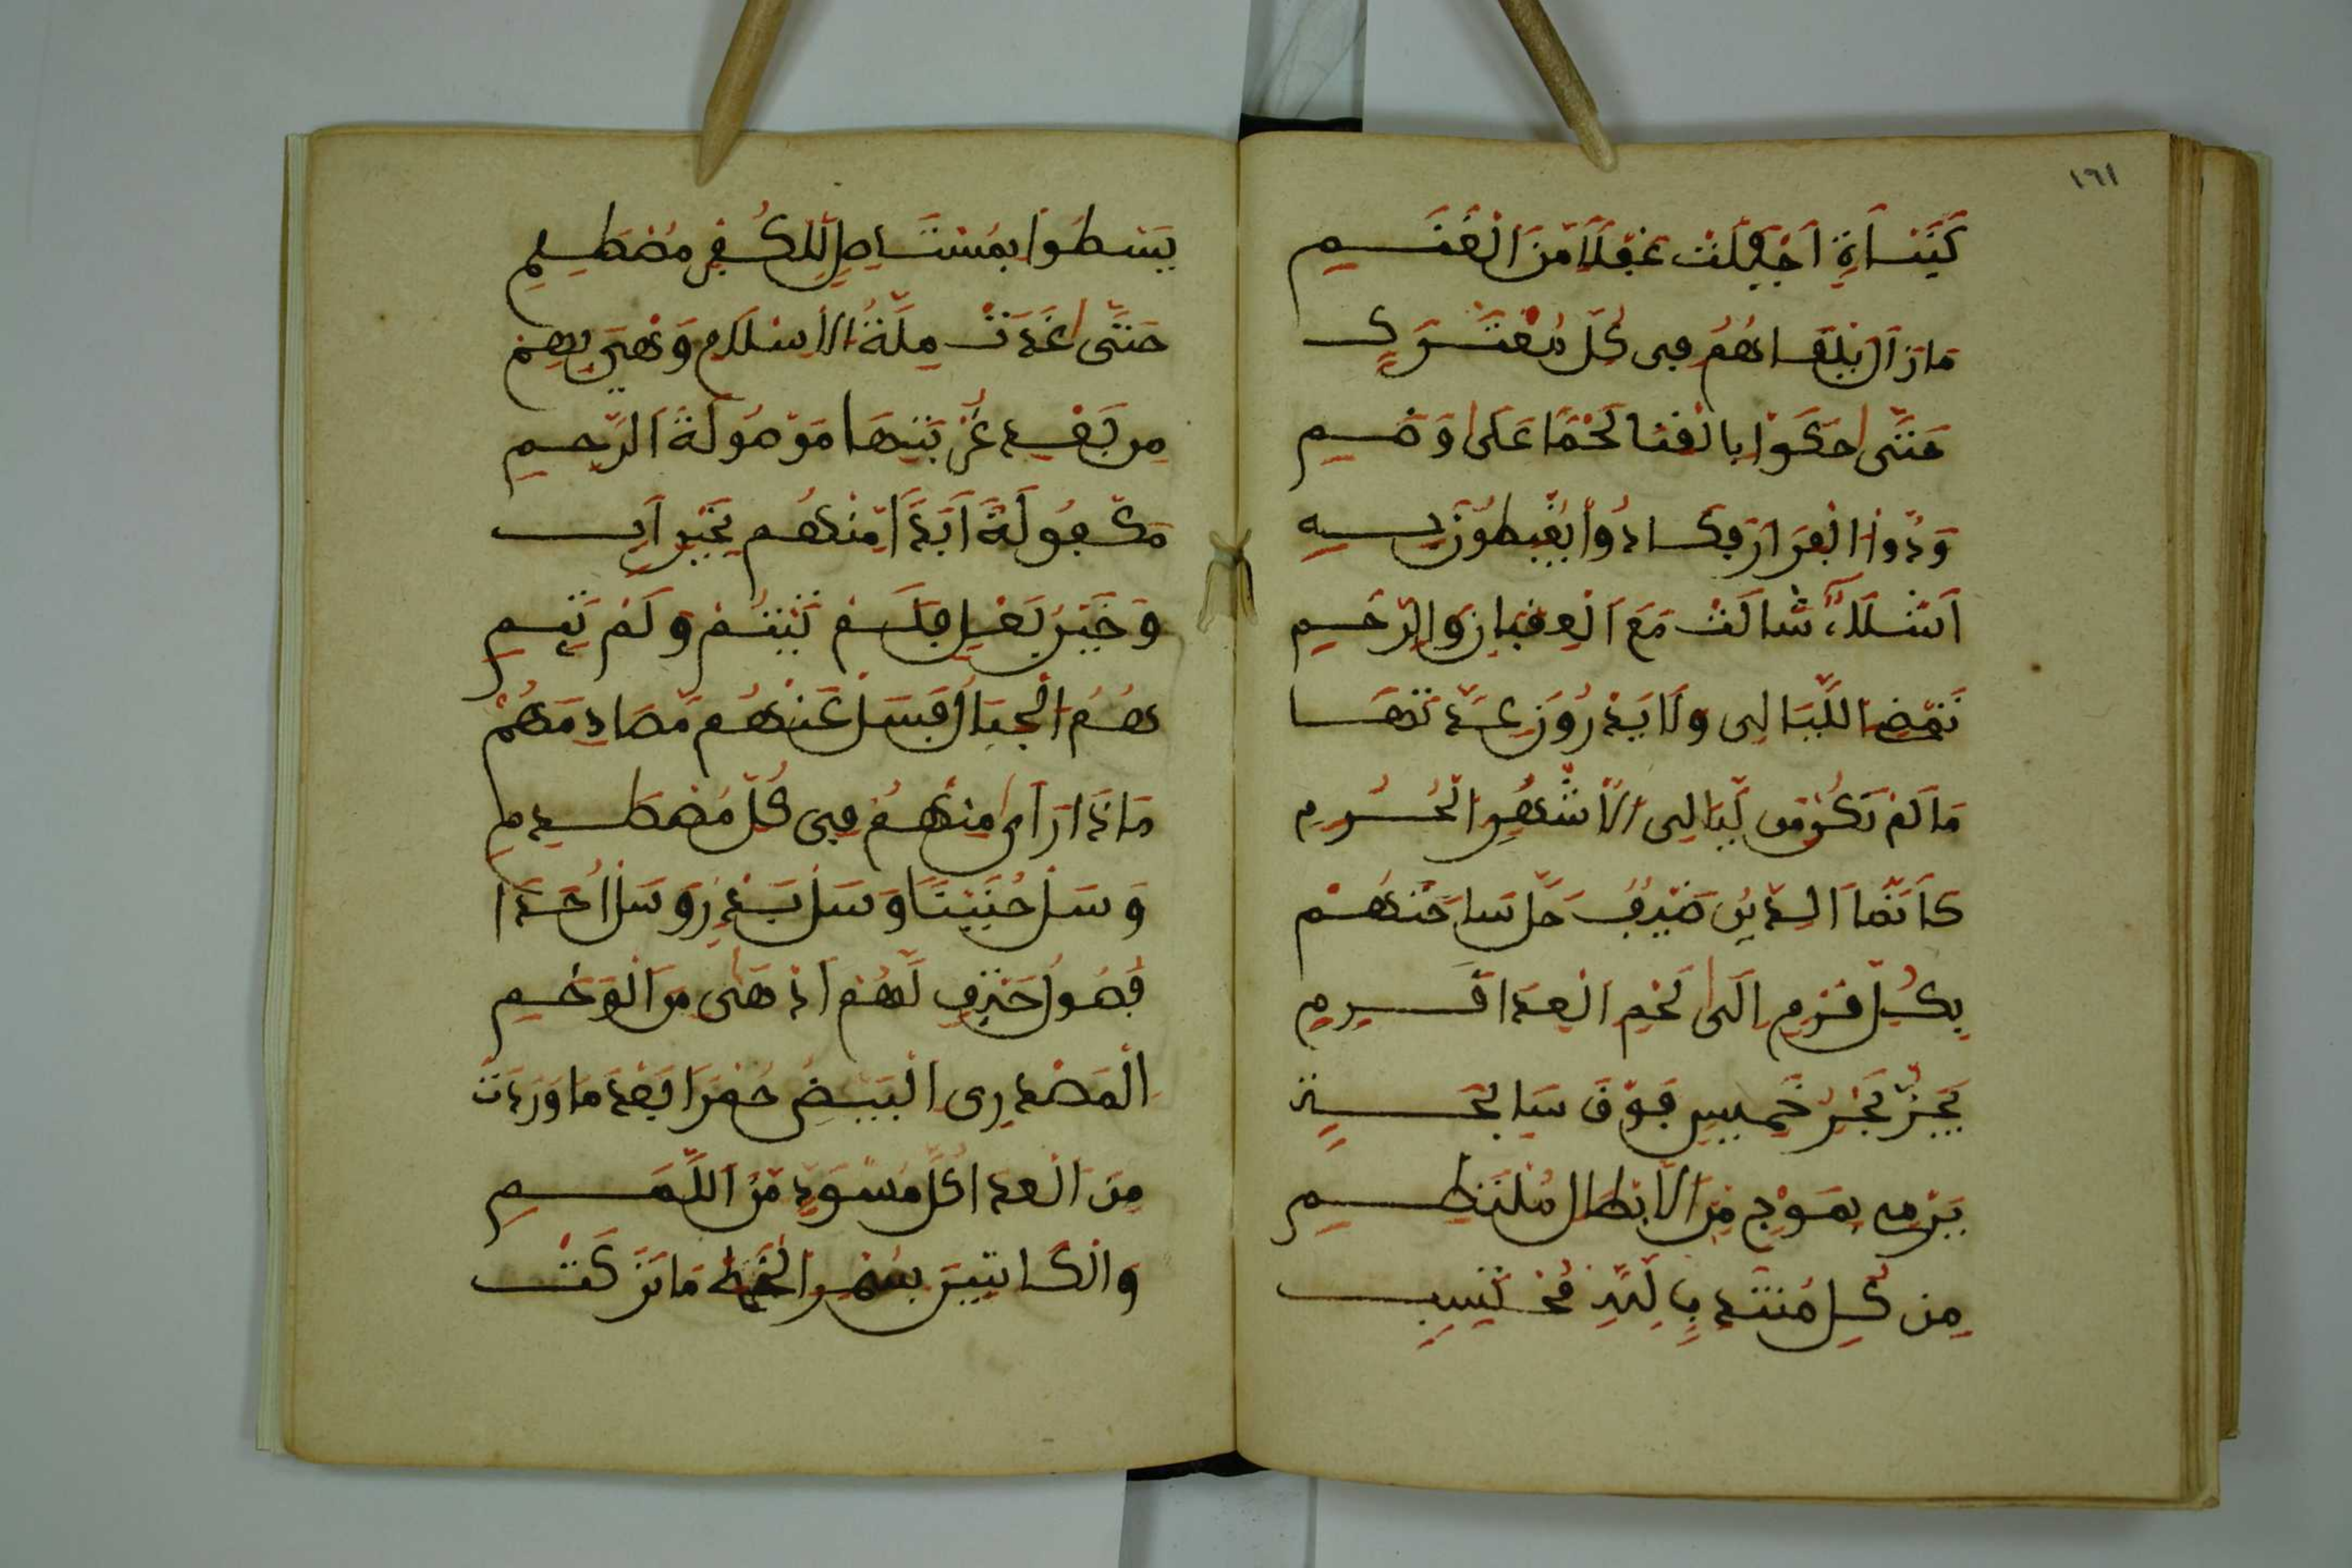 ١٦١
كَنَبْأَةٍ أَجْفَلَتْ غَفْلًا مِّنَ الْغَنَمِ
مَا زَالَ يَلْقَاهُمُ فِى كُلِّ مُعْتَرَكٍ
حَتَّى حَكَوْا بِالْقَنَا لَحْمًا عَلَى وَضَمِ
وَدُّوا الْفِرَارَ فَكَادُوا يَغْبِطُونَ بِهِ
أَشْلَاءَ شَالَتْ مَعَ الْعِقْبَانِ وَالرَّخَمِ
تَمْضِى اللَّيَالِى وَلَا يَدْرُونَ عِدَّتَهَا
مَا لَمْ تَكُنْ مِّن لَّيَالِى الْأَشْهُرِ الْحُرُمِ
كَأَنَّمَا الدِّينُ ضَيْفٌ حَلَّ سَاحَتَهُمْ
بِكُلِّ قَرْمٍ إِلَى لَحْمِ الْعِدَا قَرِمِ
يَجُرُّ بَحْرَ خَمِيسٍ فَوْقَ سَابِحَةٍ
يَرْمِى بِمَوْجٍ مِّنَ الْأَبْطَالِ مُلْتَطِمِ
مِن كُلِّ مُنْتَدِبٍ لِلَّهِ مُحْتَسِبٍ
يَسْطُوا بِمُسْتَأْصِلٍ لِلْكُفْرِ مُصْطَلِمِ
حَتَّى غَدَتْ مِلَّةُ الْإِسْلَامِ وَهْىَ بِهِمْ
مِن بَعْدِ غُرْبَتِهَا مَوْصُولَةَ الرَّحِمِ
مَكْفُولَةً أَبَدًا مِّنْهُم بِخَيْرِ أَبٍ
وَخَيْرِ بَعْلٍ فَلَمْ تَيْتَمْ وَلَمْ تَئِمِ
هُمُ الْجِبَالُ فَسَلْ عَنْهُم مُّصَادِمَهُمْ
مَاذَا رَأَى مِنْهُمُ فِى كُلِّ مُصْطَدَمِ
وَسَلْ حُنَيْنًا وَسَلْ بَدْرًا وَسَلْ أُحُدًا
فُصُولَ حَتْفٍ لَّهُمْ أَدْهَى مِنَ الْوَخَمِ
الْمُصْدِرِى الْبِيضَ حُمْرًا بَعْدَ مَا وَرَدَتْ
مِنَ الْعِدَا كُلَّ مُسْوَدٍّ مِّنَ اللِّمَمِ
وَالْكَاتِبِينَ بِسُمْرِ الْخَطِّ مَا تَرَكَتْ